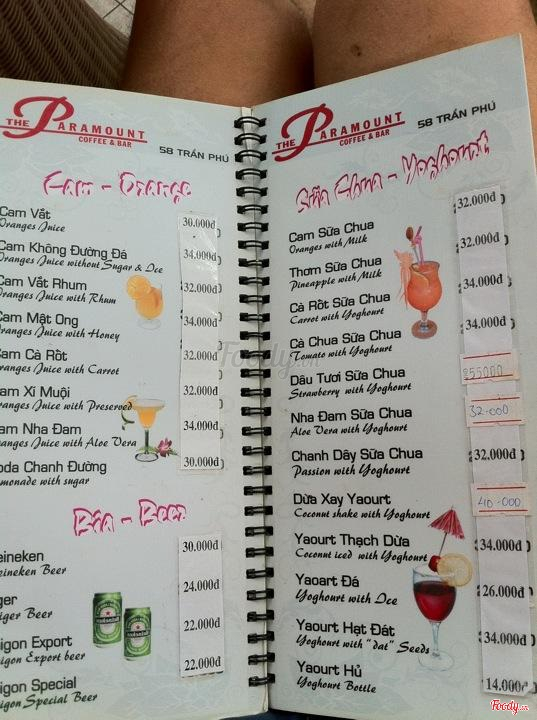 THE PARAMOUNT
COFFEE & BAR
58 TRẦN PHÚ
Cam - Orange
Cam Vắt
Oranges Juice
30.000đ
Cam Không Đường Đá
Oranges Juice without Sugar & Ice
34.000đ
Cam Vắt Rhum
Oranges Juice with Rhum
32.000đ
Cam Mật Ong
Oranges Juice with Honey
34.000đ
Cam Cà Rốt
Oranges Juice with Carrot
32.000đ
am Xí Muội
ranges Juice with Preserved
32.000đ
am Nha Đam
ranges Juice with Aloe Vera
34.000đ
oda Chanh Đường
monade with sugar
30.000đ
Bia - Beer
eineken
eineken Beer
30.000đ
ger
iger Beer
24.000đ
aigon Export
aigon Export beer
22.000đ
aigon Special
aigon Special Beer
22.000đ
THE PARAMOUNT
COFFEE & BAR
58 TRẦN PHÚ
Sữa Chua - Yoghourt
Cam Sữa Chua
Oranges with Milk
32.000đ
Thơm Sữa Chua
Pineapple with Milk
32.000đ
Cà Rốt Sữa Chua
Carrot with Yoghourt
34.000đ
Cà Chua Sữa Chua
Tomato with Yoghourt
34.000đ
Dâu Tươi Sữa Chua
Strawberry with Yoghourt
Nha Đam Sữa Chua
Aloe Vera with Yoghourt
32.000
Chanh Dây Sữa Chua
Passion with Yoghourt
32.000đ
Dừa Xay Yaourt
Coconut shake with Yoghourt
40.000
Yaourt Thạch Dừa
Coconut iced with Yoghourt
34.000đ
Yaoart Đá
Yoghourt with Ice
26.000đ
Yaourt Hạt Đát
Yoghourt with "dat" Seeds
34.000đ
Yaourt Hủ
Yoghourt Bottle
14.000đ
Foody.vn
Foody.vn